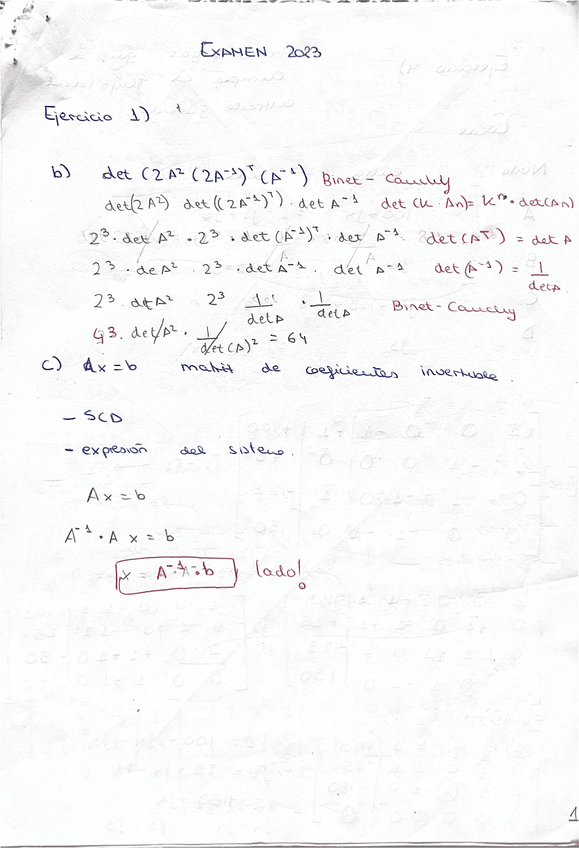 EXAMEN 2023
Ejercicio 1)
b) det (2A² (2A⁻¹)ᵀ (A⁻¹) Binet - Cauchy
det(2A²) det((2A⁻¹)ᵀ) · det A⁻¹ det (K · An) = Kⁿ · det(An)
2³ · det A² · 2³ · det (A⁻¹)ᵀ · det A⁻¹ det (Aᵀ) = det A
2³ · de A² 2³ · det A⁻¹ · det A⁻¹ det (A⁻¹) = 1/detA
2³ detA² 2³ 1/detA · 1/detA Binet-Cauchy
det A² · 1/det(A)² = 64
c) Ax = b de coeficientes invertible.
- SCD
- expresión del sistema.
Ax = b
A⁻¹ · A x = b
x = A⁻¹ · b lado!
1